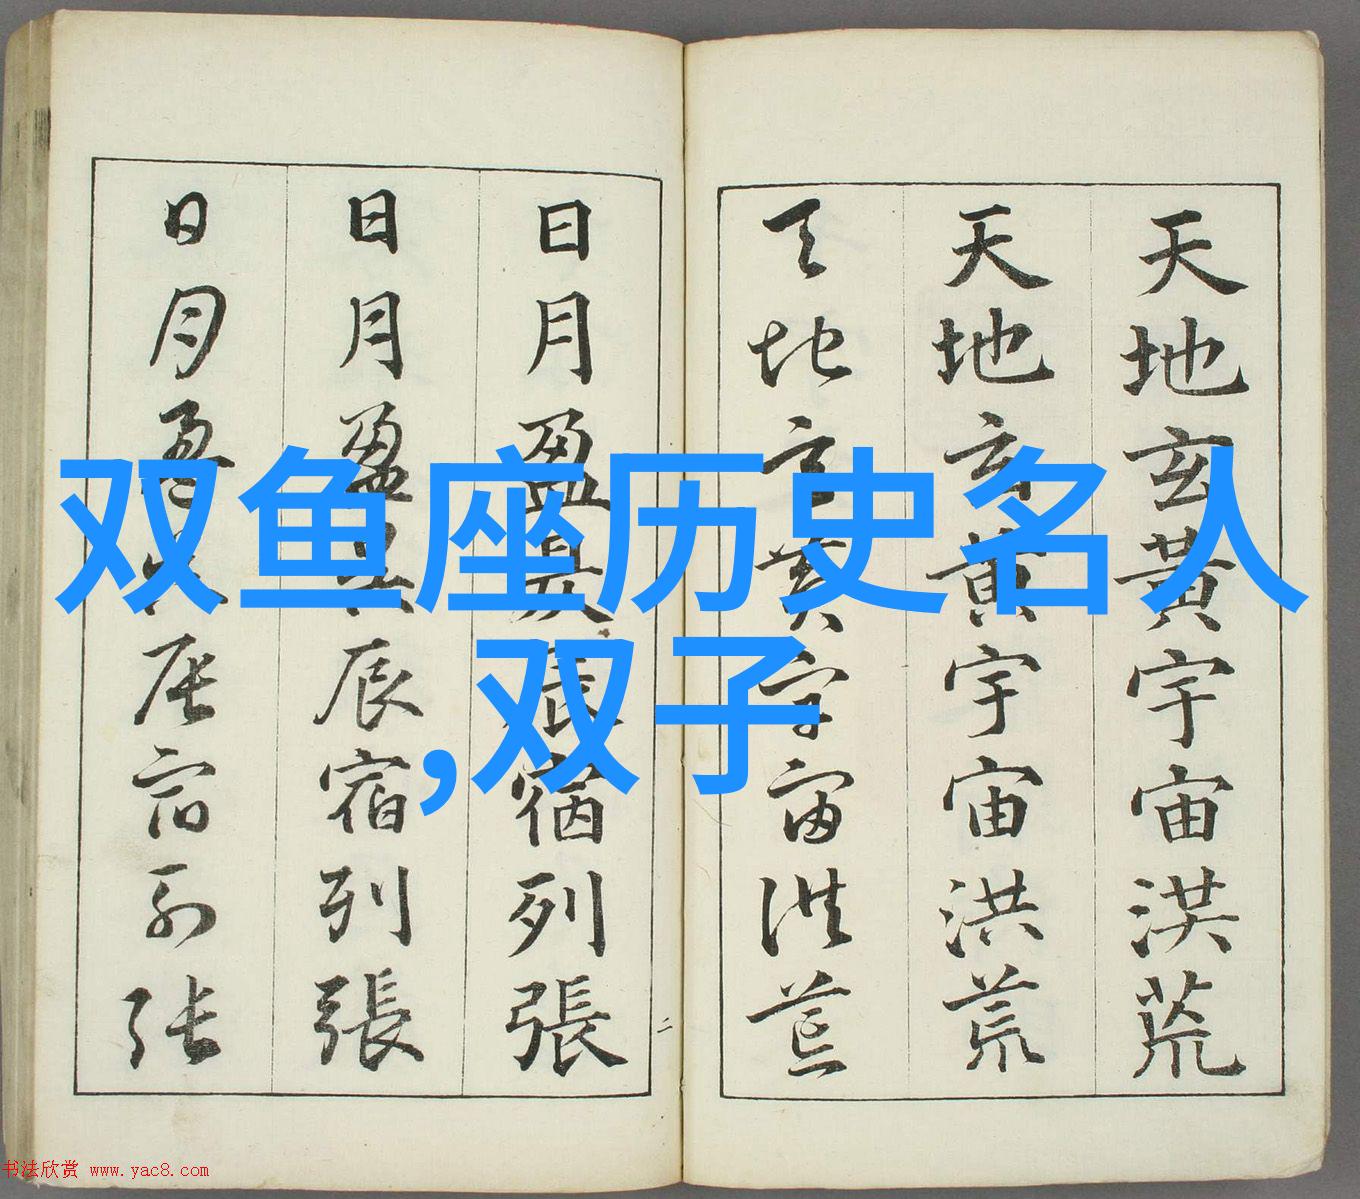 天地玄黄宇宙洪荒
天地玄黄宇宙洪荒
天地玄黄宇宙洪荒
日月盈昃辰宿列張
日月盈昃辰宿列張
日月盈昃辰宿列張
二
双鱼座历史名人
,双子
书法欣赏 www.yac8.com